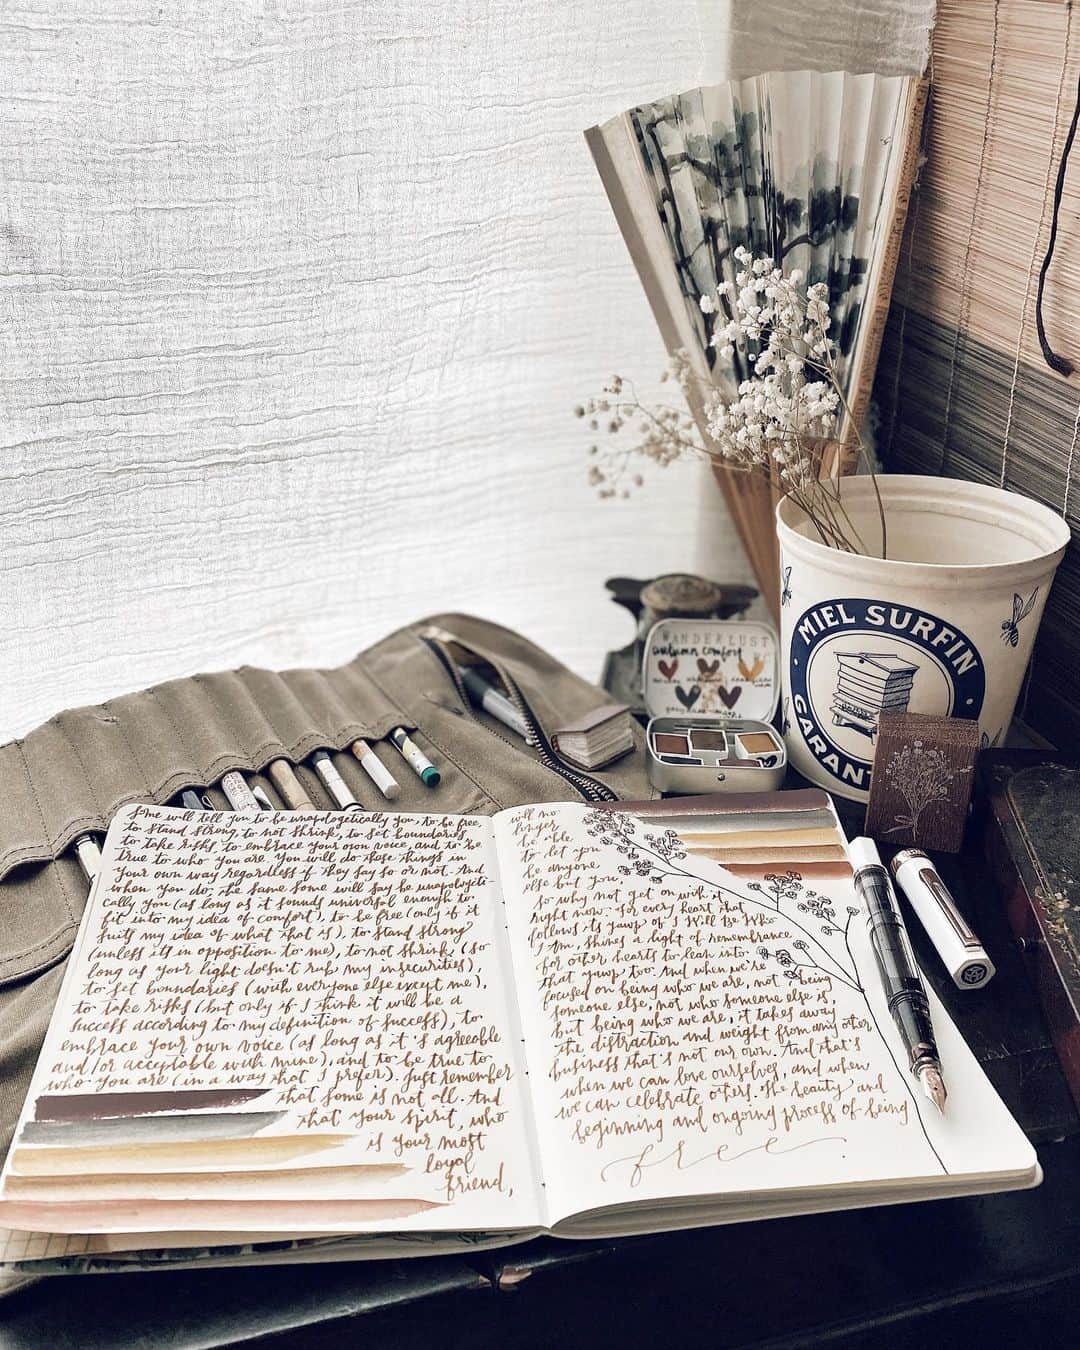 WANDERLUST
autumn comfort
MIEL SURFIN
GARANT
Some will tell you to be unapologetically you, to be free,
to stand strong, to not shrink, to set boundaries,
to take risks, to embrace your own voice, and to be
true to who you are. You will do those things in
your own way regardless if they say so or not. And
when you do, the same some will say be unapologeti-
cally you (as long as it sounds universal enough to
fit into my idea of comfort), to be free (only if it
suits my idea of what that is), to stand strong
(unless its in opposition to me), to not shrink (so
long as your light doesn't rub my insecurities),
to set boundaries (with everyone else except me),
to take risks (but only if I think it will be a
success according to my definition of success), to
embrace your own voice (as long as it's agreeable
and/or acceptable with mine), and to be true to
who you are (in a way that I prefer). Just remember
that some is not all. And
that your spirit, who
is your most
loyal
friend,
will no
longer
be able
to let you
be anyone
else but you,
so why not get on with it
right now. For every heart that
follows its yawp of I Will Be Who
I Am, shines a light of remembrance
for other hearts to lean into
that yawp too. And when we're
focused on being who we are, not being
someone else, not who someone else is,
but being who we are, it takes away
the distraction and weight from any other
business that's not our own. And that's
when we can love ourselves, and when
we can celebrate others. The beauty and
beginning and ongoing process of being
free